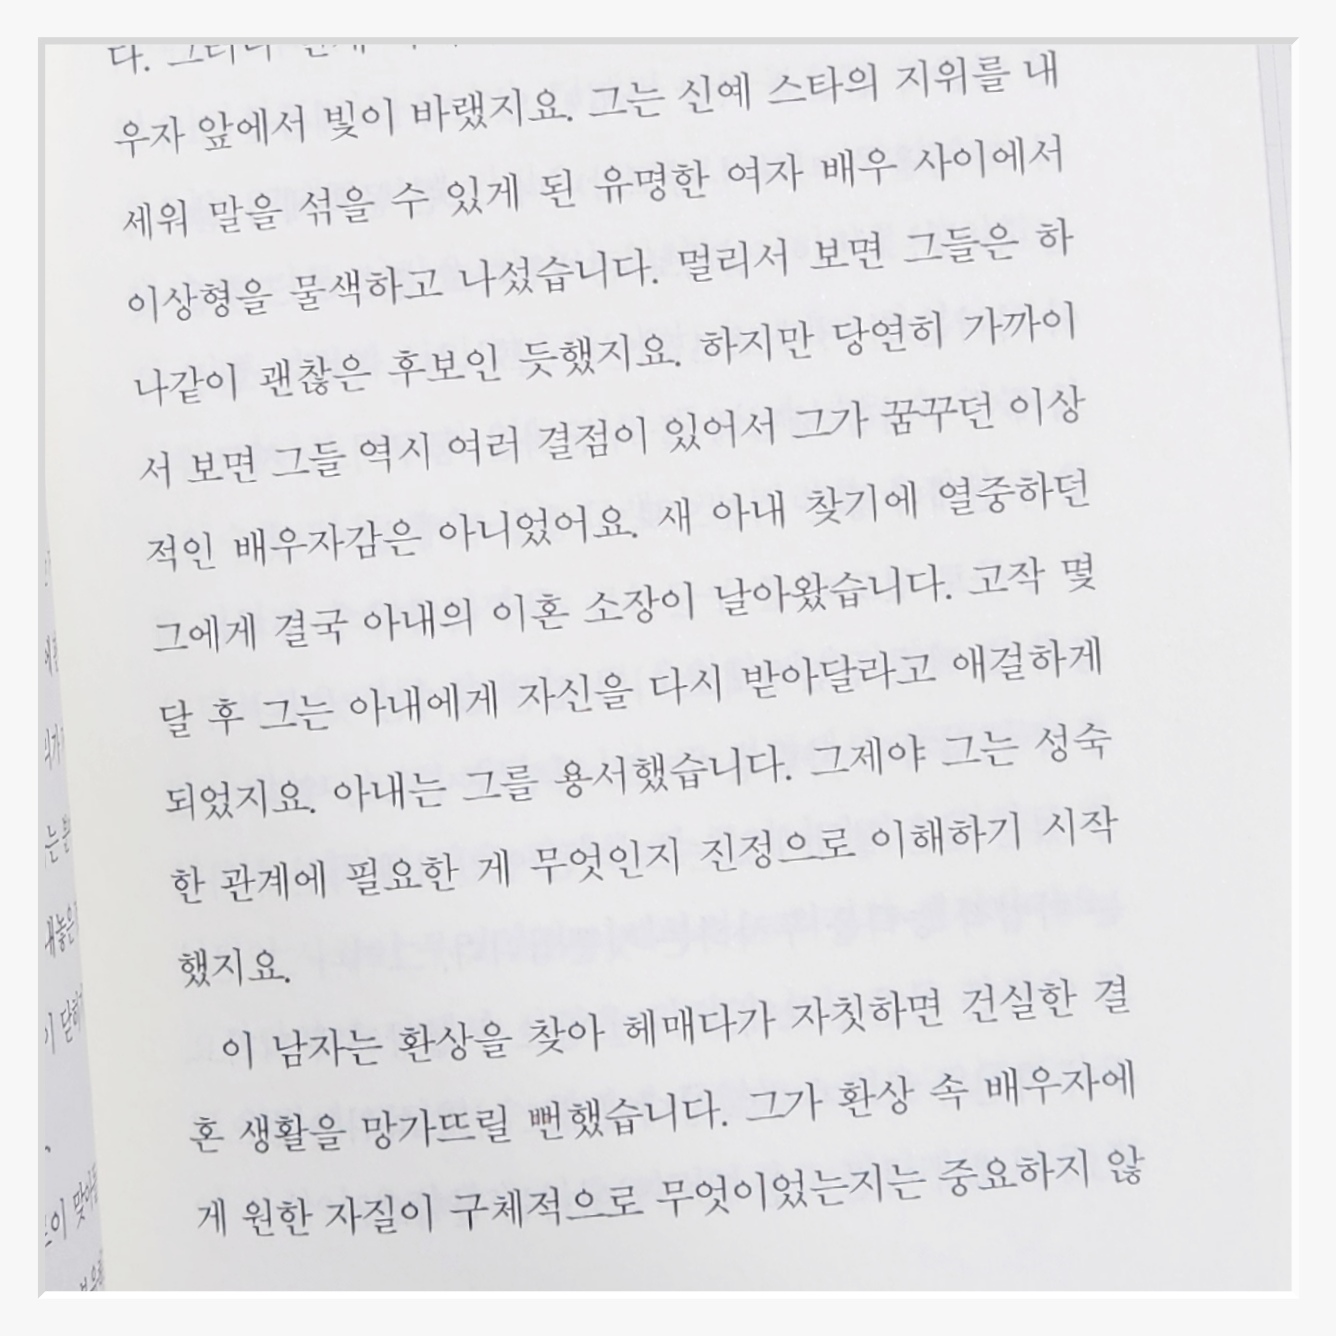 우자 앞에서 빛이 바랬지요. 그는 신예 스타의 지위를 내
세워 말을 섞을 수 있게 된 유명한 여자 배우 사이에서
이상형을 물색하고 나섰습니다. 멀리서 보면 그들은 하
나같이 괜찮은 후보인 듯했지요. 하지만 당연히 가까이
서 보면 그들 역시 여러 결점이 있어서 그가 꿈꾸던 이상
적인 배우자감은 아니었어요. 새 아내 찾기에 열중하던
그에게 결국 아내의 이혼 소장이 날아왔습니다. 고작 몇
달 후 그는 아내에게 자신을 다시 받아달라고 애걸하게
되었지요. 아내는 그를 용서했습니다. 그제야 그는 성숙
한 관계에 필요한 게 무엇인지 진정으로 이해하기 시작
했지요.
이 남자는 환상을 찾아 헤매다가 자칫하면 건실한 결
혼 생활을 망가뜨릴 뻔했습니다. 그가 환상 속 배우자에
게 원한 자질이 구체적으로 무엇이었는지는 중요하지 않